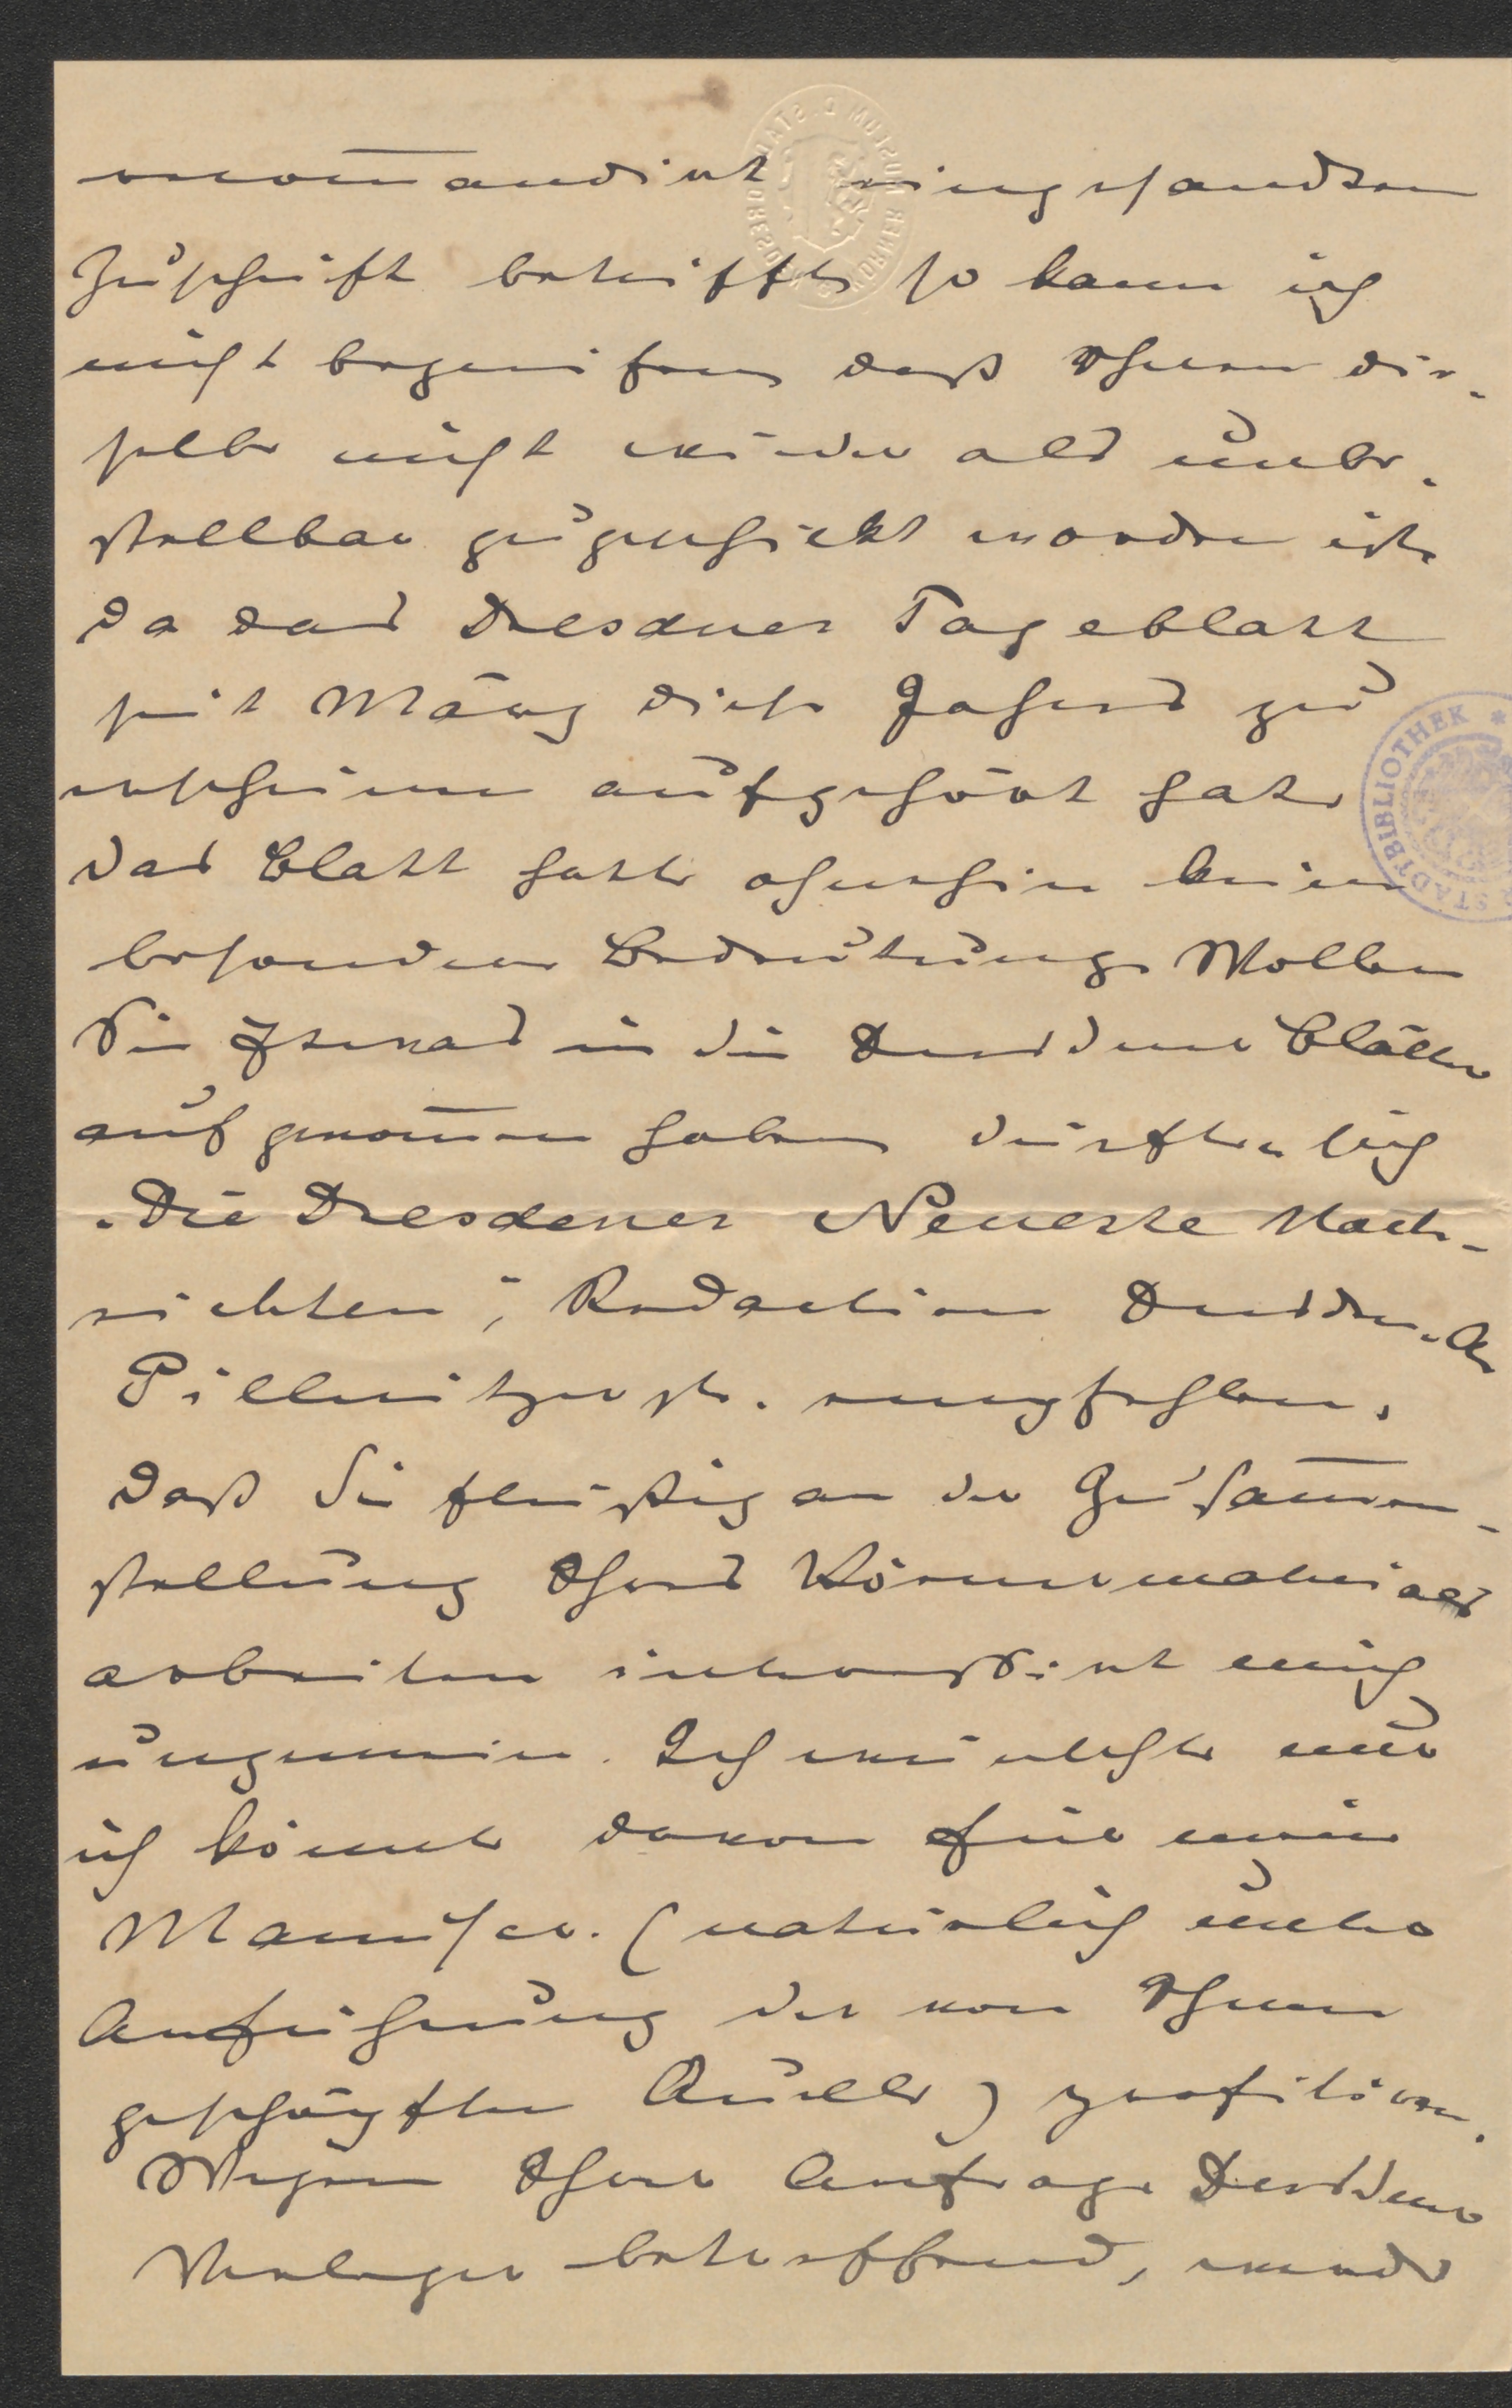 recom̄andirt eingesandten
Zuschrift betrifft so kann ich
nicht begreifen daß Ihnen die-
selbe nicht wieder als unbe-
stellbar zugeschickt worden ist
da das Dresdner Tageblatt
seit März diese Jahres zu
erscheinen aufgehört hat.
Das Blatt hatte ohnehin keine
besondere Bedeutung. Wollen
Sie Etwas in die Dresdener Blätter
aufgenom̄en haben dürfte sich
"Die Dresdener Neueste Nach-
richten", Redaction Dresden. A
Pillnitzerstr. empfehlen.
Daß Sie fleißig an der Zusam̄en-
stellung Ihres Körnermaterials
arbeiten interessirt mich
ungemein. Ich wünschte nur
ich könnte davon für mein
Manuscr. (natürlich unter
Anführung der von Ihnen
geschöpften Quelle) profitiren.
Wegen Ihrer Anfrage Dresdener
Verleger betreffend, werde
STADTBIBLIOTHEK